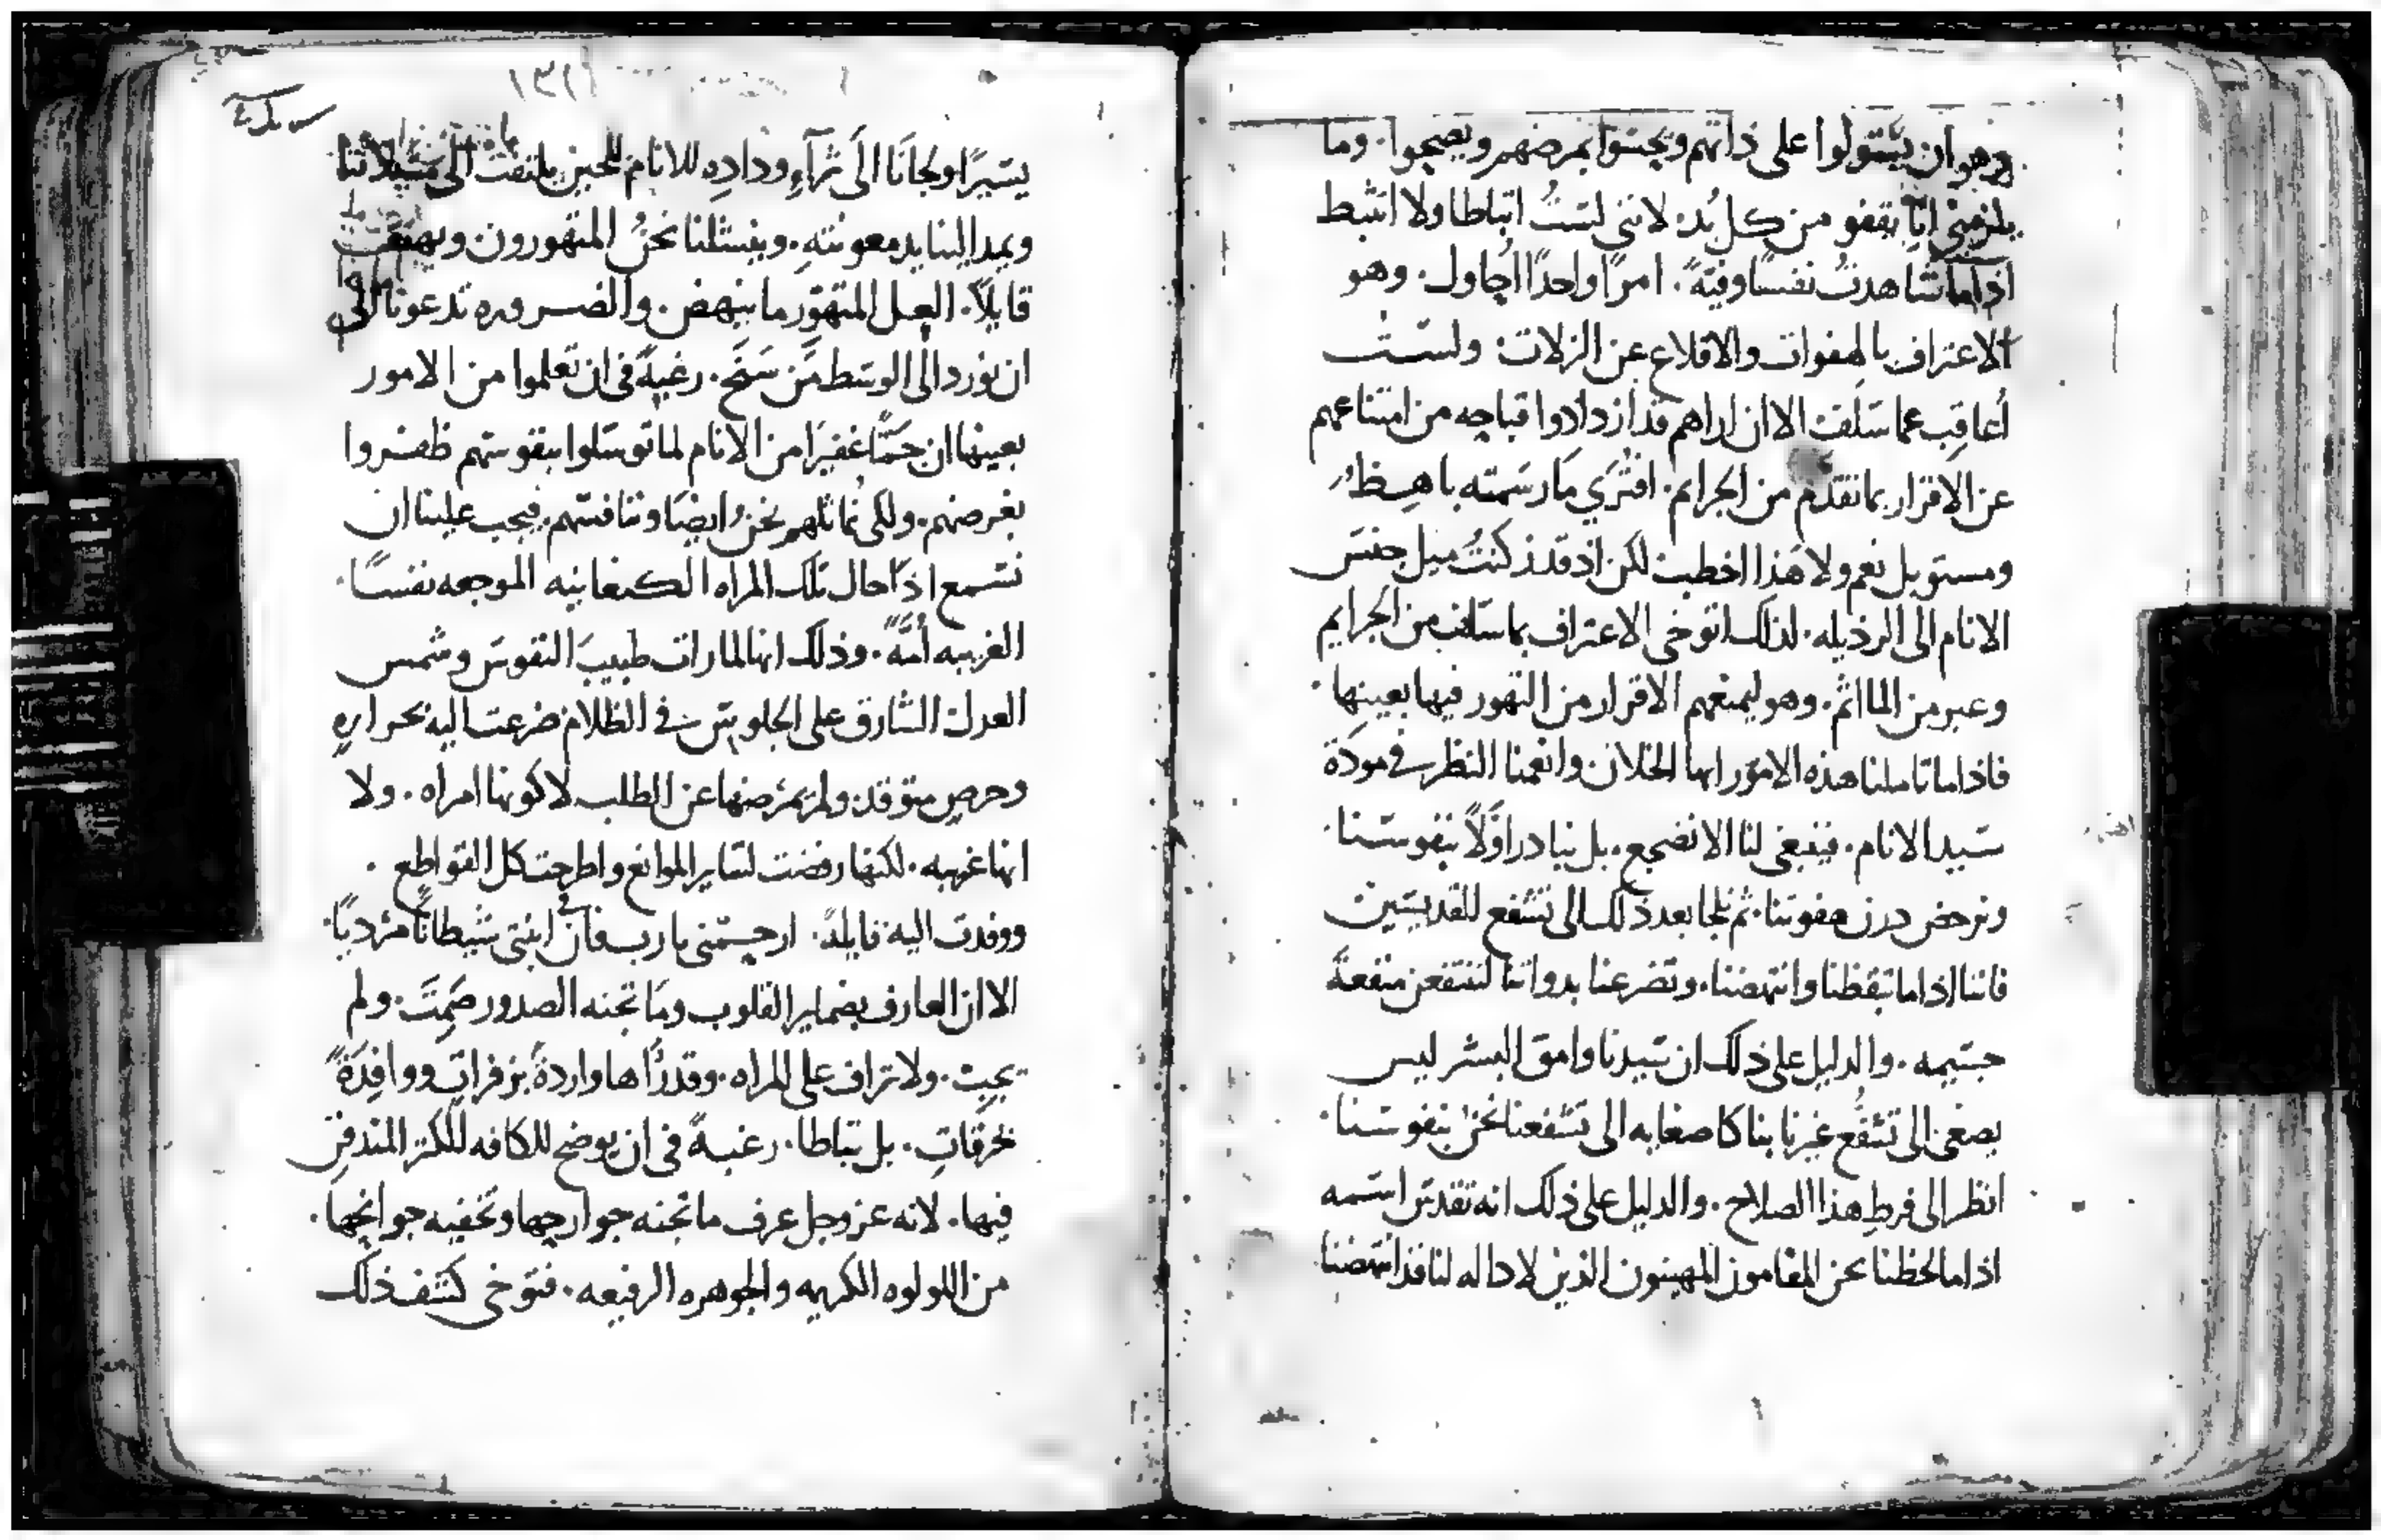 وهو ان يستولوا على ذاتهم ويحسّوا بمرضهم ويصيحوا. وما
يلزمني يقفو من كل بُد. لانني لستُ اتباطا ولا اتثبط
اذا ما شاهدتُ نفسًا وفيّةً. امرًا واحدًا احاول. وهو
الاعتراف بالهفوات والاقلاع عن الزلات. ولست
أعاقِب عما سَلَفَ الا ان اراهم قد ازدادوا قباحه من امتناعهم
عن الاقرار بما تقدم من الجرايم. افترَي مَا رسَمته باهِظ
ومستوبل نعم ولا هَذا اخطيت لكن اذ قد زكنتُ ميل جنسَ
الانام الى الرذيله. لذلك اتوخى الاعتراف بما سَلف من الجرايم
وعبر من الماآثم. وهو ليمنعهم الاقرار من التهور فيها بعينها.
فاذا ما تاملنا هذه الامور ايها الخلان وانعمنا النظر في مودَة
سَيد الانام. فينبغي لنا الا نضجع. بل نبادر اوّلاً بنفوسنا.
ونرحض درن هفوتنا. ثم نلجا بعد ذلك الى تشفع القديسين
فاننا اذا ما تيقظنا وانتهضنا. وتضرعنا بذواتنا لننتفعن منفعةً
جسَيمه. والدليل على ذلك ان سَيدنا وامق البشر ليس
يصغي الى تشفُّع غيرنا بنا كاصغايه الى تشفعنا نحن بنفوسنا.
انظر الى فرط هذا الصلاح. والدليل على ذلك انه تقدسَ اسمه
اذا ما لحظنا نحن المهينون الذين لا داله لنا قد انتهضنا
يسَيرًا ولجانَا الَى ثرآءِ ودادِه للانام للحين يلتفت الى
ويمد الينا يد معونتهِ. وينشلنا نحنُ المتهورون ويهتف
قايلاً. العِل المتهوّر ما ينهض. والضروره تدعونا الى
ان نورد الى الوسَط مَن سَنَح. رغبةً في ان تَعلموا من الامور
بعينها ان جَمًّا غفيرًا من الانام لما توسَلوا بنفوسهم ظفروا
بغرضهم. ولكي نماثلهم نحن ايضًا وننافسَهم. فيجب علينا ان
نسَمع اذًا حال تلك المراه الكنعانيه الموجعه نفسًا.
الغريبه أُمَّةً. وذلك انها لما رات طبيبَ النفوسَ وشمس
العدل الشارق على الجلوسَ في الظلام ضرعت اليه بحراره
وحرصٍ متوقد. ولم يمرّضها عن الطلب لا كونها امراه. ولا
انها غريبه. لكنها رفضت لسَاير الموانع واطرحت كل القواطع.
ووفدت اليه قايلةً. ارحمني يا رب فان في ابنتي شيطانًا مُرديًا.
الا ان العارف بضماير القلوب ومَا تجنه الصدور صَمِتَ. ولم
يجب. ولا تراف على المراه. وقد رأها واردةً بزفراتٍ ووافِدةً
بحرقاتٍ. بل تباطا. رغبةً في ان يوضح للكافه للكنز المندفن
فيها. لانه عز وجل عرف ما تجنه جوارحها وتخفيه جوانحها.
من اللولوه الكريمه والجوهره الرفيعه. فتوخى كشف ذلك